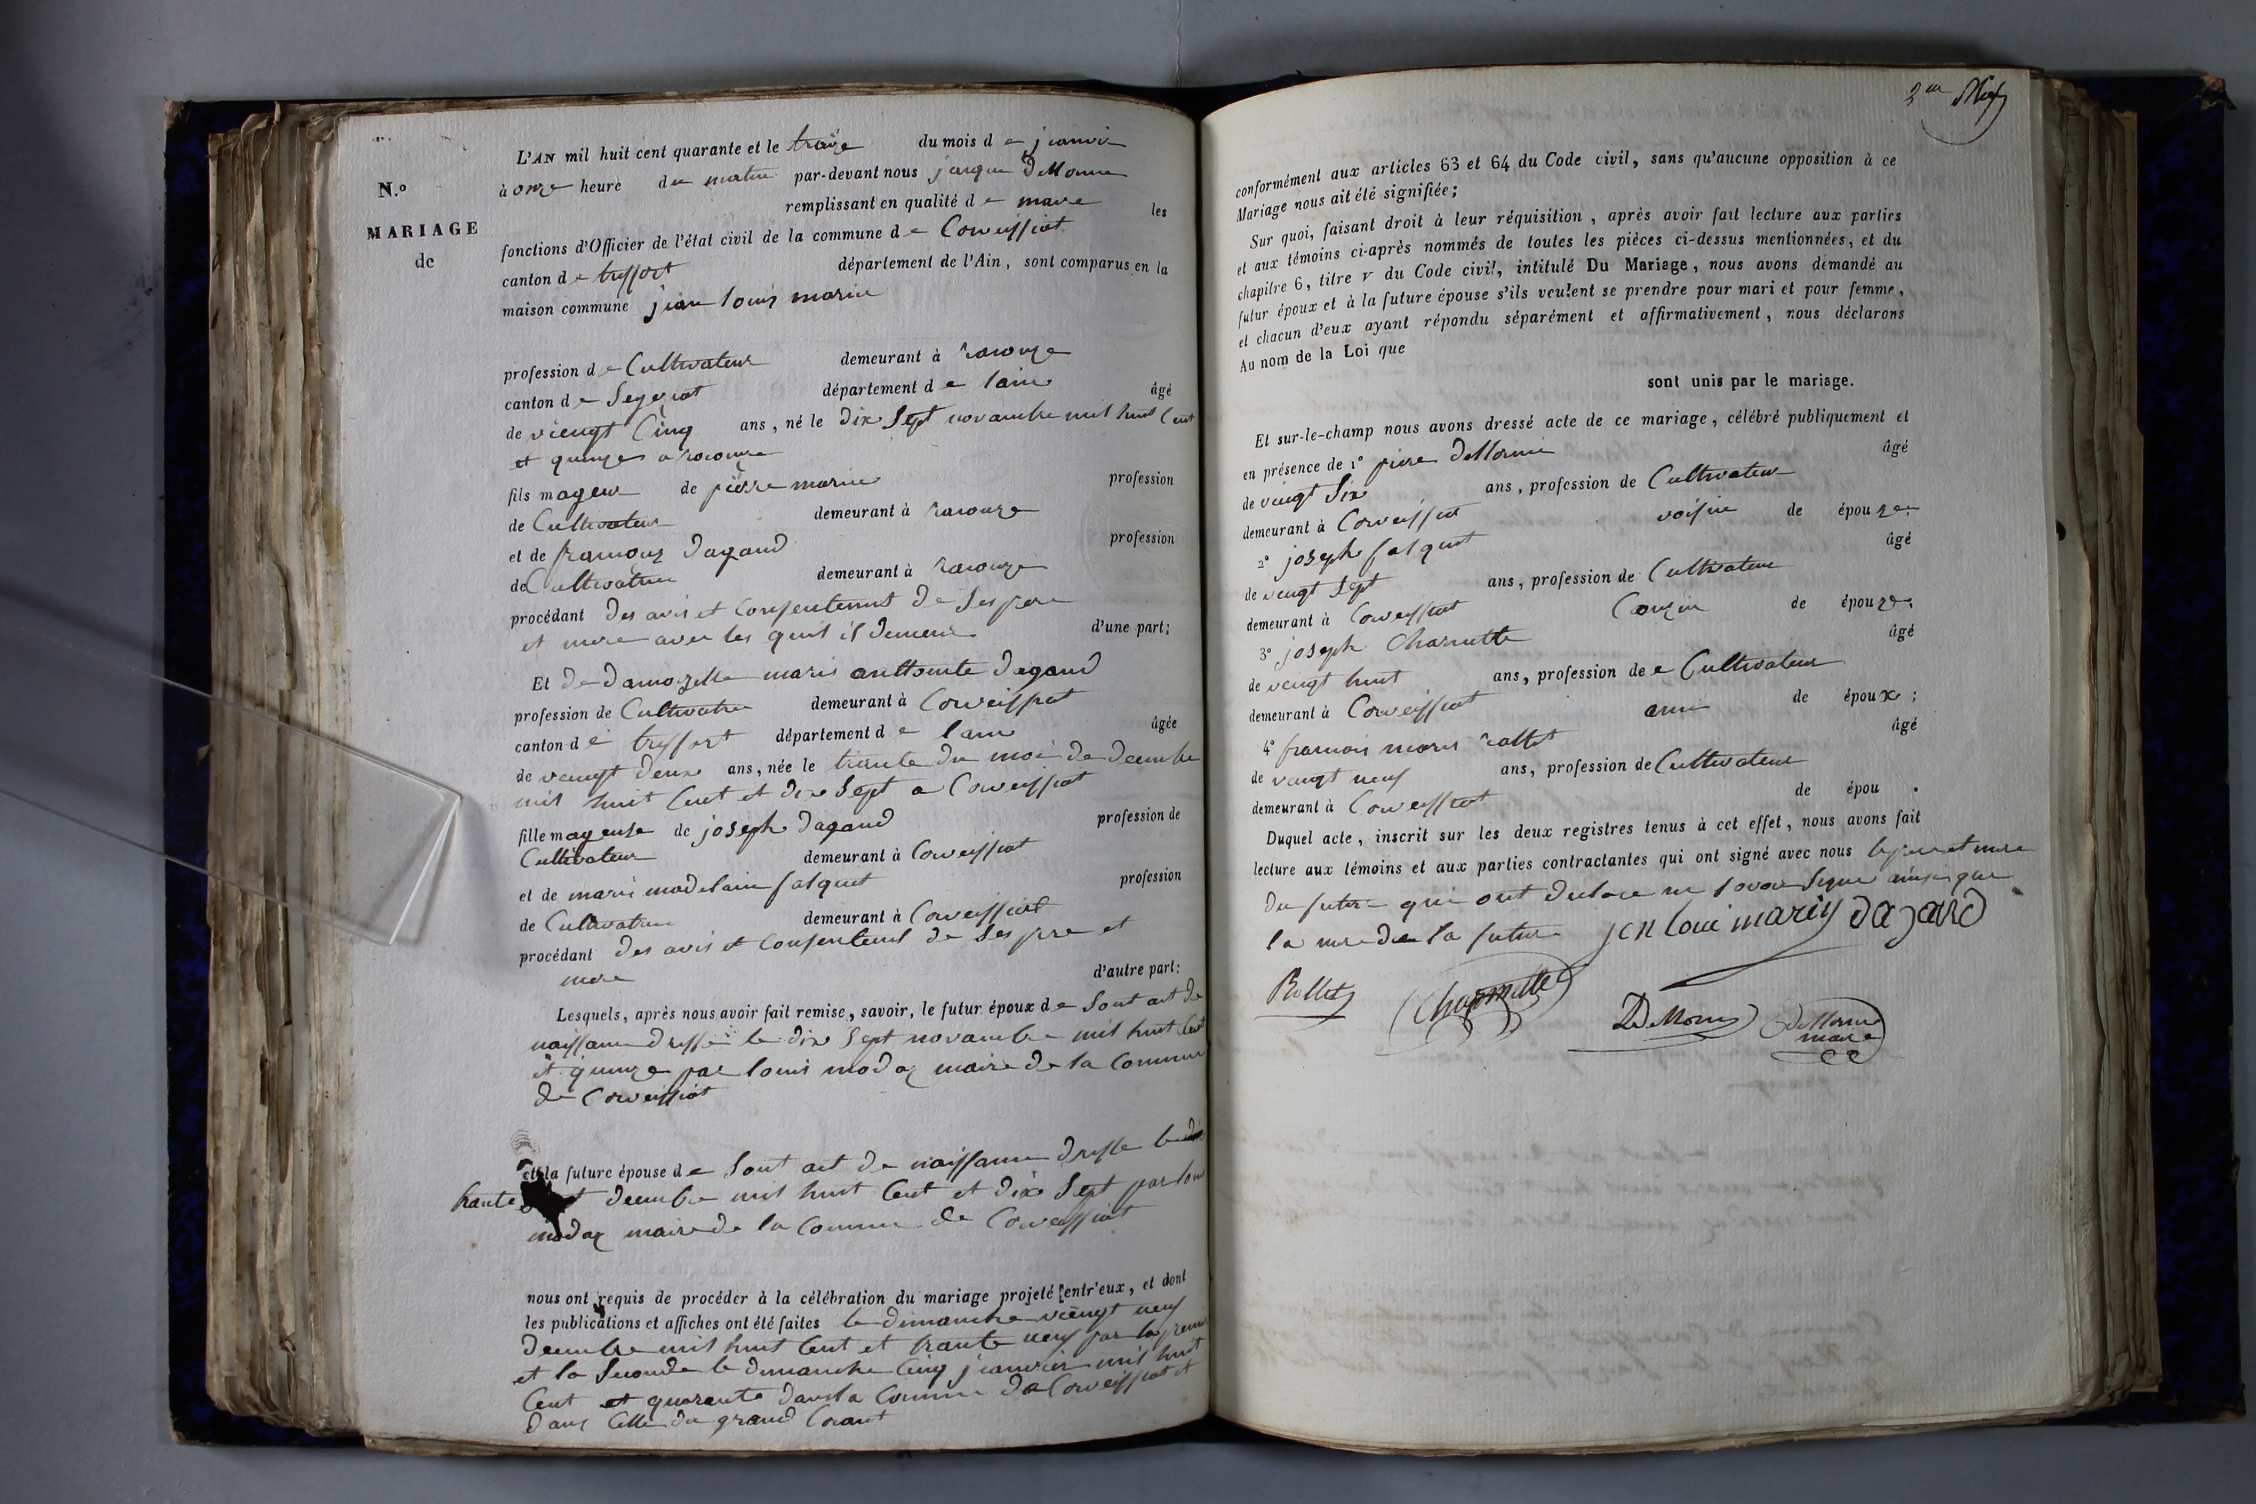 N.o
MARIAGE
de
L'AN mil huit cent quarante et le traize du mois d e janvie
à onze heure du matin par-devant nous jacque DeMorne
remplissant en qualité d e maire les
fonctions d'Officier de l'état civil de la commune d e Corveissiat
canton d e treffort département de l'Ain, sont comparus en la
maison commune jean louis marin
profession d e Cultivateur demeurant à racouze
canton d e Seyeriat département d e lain âgé
de viengt Cinq ans, né le dix Sept novambre mil huit Cent
et quinze a racouze
fils mageur de pierre marin profession
de Cultivateur demeurant à racouze
et de dagand profession
de Cultivatrice demeurant à racouze
procédant des avis et Consentement de Ses pere
et mere avec les quels il demeure d'une part;
Et de damoizelle marie anthoinete dagand
profession de Cultivatrice demeurant à Corveissiat
canton d e treffort département d e lain âgée
de veingt deux ans, née le trante du moi de decembre
mil huit Cent et dix Sept a Corveissiat
fille mageuse de joseph dagand profession de
Cultivateur demeurant à Corveissiat
et de marie madelaine falquet profession
de Cultivatrice demeurant à Corveissiat
procédant des avis et Consentement de Ses pere et
mere d'autre part:
Lesquels, après nous avoir fait remise, savoir, le futur époux d e Sont act de
naissance dressé le dix Sept novambre mil huit Cent
et quinze par louis modaz maire de la Commune
de Corveissiat
et la future épouse d e Sont act de naissance dressé le
trante decembre mil huit Cent et dix Sept par loui
modaz maire de la Commune de Corveissiat
nous ont requis de procéder à la célébration du mariage projeté entr'eux, et dont
les publications et affiches ont été faites le dimanche viengt neuf
decembre mil huit Cent et trante neuf par la premie
et la Seconde le dimanche Cinq jeanvier mil huit
Cent et quarante dans la Commune de Corveissiat et
dans Celle du grand Corant
conformément aux articles 63 et 64 du Code civil, sans qu'aucune opposition à ce
Mariage nous ait été signifiée;
Sur quoi, faisant droit à leur réquisition, après avoir fait lecture aux parties
et aux témoins ci-après nommés de toutes les pièces ci-dessus mentionnées, et du
chapitre 6, titre v du Code civil, intitulé Du Mariage, nous avons demandé au
futur époux et à la future épouse s'ils veulent se prendre pour mari et pour femme,
et chacun d'eux ayant répondu séparément et affirmativement, nous déclarons
Au nom de la Loi que
sont unis par le mariage.
Et sur-le-champ nous avons dressé acte de ce mariage, célébré publiquement et
en présence de 1° piere deMorne âgé
de veingt Six ans, profession de Cultivateur
demeurant à Corveissiat voisin de épouze;
2° joseph falquet âgé
de veingt Sept ans, profession de Cultivateur
demeurant à Corveissiat Couzin de épouze;
3° joseph Charnutte âgé
de veingt huit ans, profession de e Cultivateur
demeurant à Corveissiat ami de époux;
4° francois marie rollet âgé
de veingt neuf ans, profession de Cultivateur
demeurant à Corveissiat de épou .
Duquel acte, inscrit sur les deux registres tenus à cet effet, nous avons fait
lecture aux témoins et aux parties contractantes qui ont signé avec nous le pere et mere
du futur qui ont declare ne Savoir Signe ainsi que
la mere de la future jen loui marin dagand
Rollet DeMorne DeMorne
maire